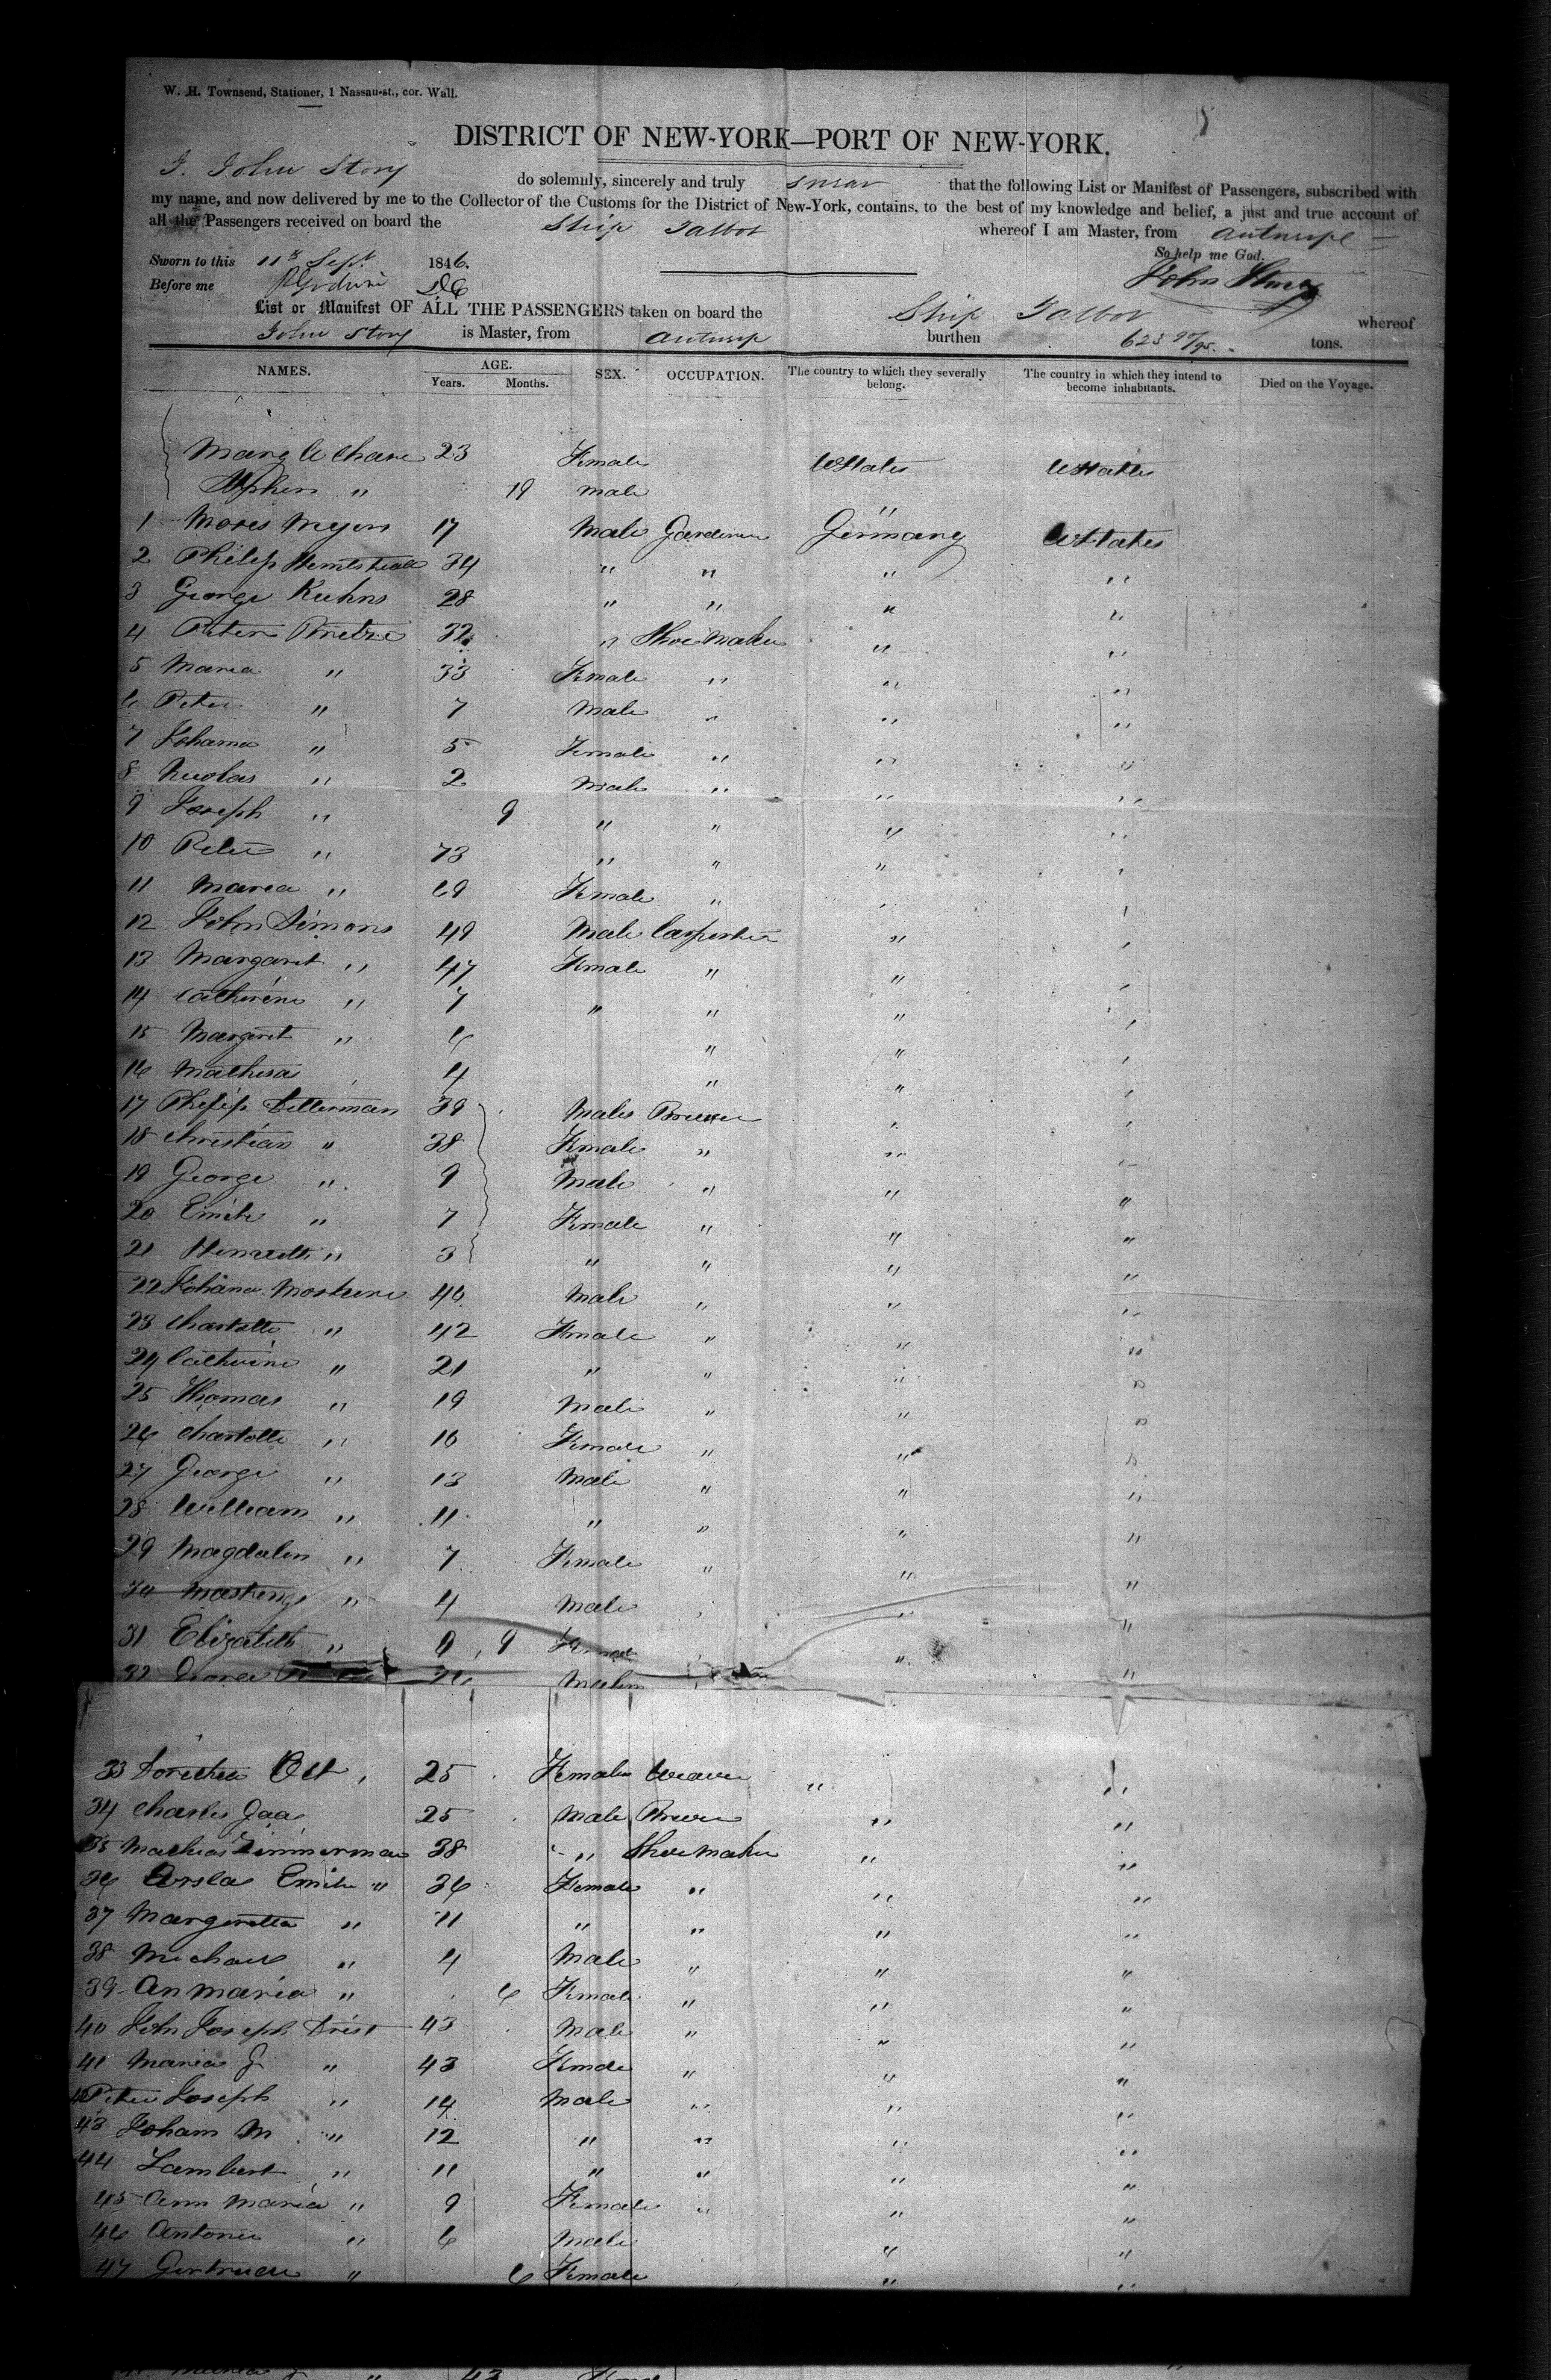 W. H. Townsend, Stationer, 1 Nassau-st., cor. Wall.
DISTRICT OF NEW-YORK—PORT OF NEW-YORK.
I. John Story do solemnly, sincerely and truly swear that the following List or Manifest of Passengers, subscribed with
my name, and now delivered by me to the Collector of the Customs for the District of New-York, contains, to the best of my knowledge and belief, a just and true account of
all the Passengers received on board the Ship Talbot whereof I am Master, from Antwerp
So help me God.
Sworn to this 11th Sept. 1846. John Story
Before me
List or Manifest OF ALL THE PASSENGERS taken on board the Ship Talbot whereof
John Story is Master, from Antwerp burthen 623 tons.
NAMES. AGE. SEX. OCCUPATION. The country to which they severally belong. The country in which they intend to become inhabitants. Died on the Voyage.
Years. Months.
23 Female UStates UStates
Stephen " 19 male "
1 Moses Meyers 17 Male Gardener Germany UStates
2 Philip 34 " " " "
3 George Kuhns 28 " " " "
4 Peter 32 " Shoe Maker " "
5 Maria " 33 Female " " "
6 Peter " 7 Male " " "
7 Johanna " 5 Female " " "
8 Nicolas " 2 Male " " "
9 Joseph " 9 " " " "
10 Peter " 73 " " " "
11 Maria " 69 Female " " "
12 John Simons 49 Male Carpenter " "
13 Margaret " 47 Female " " "
14 Catherine " 7 " " " "
15 Margaret " 6 " " "
16 Mathias 4 " " "
17 Philip Dellerman 39 Male Brewer " "
18 Christian " 38 Female " " "
19 George " 9 Male " " "
20 Emile " 7 Female " " "
21 " 3 " " " "
22 Johana 46 Male " " "
23 Charlotte " 42 Female " " "
24 Catherine " 21 " " " "
25 Thomas " 19 Male " " "
26 Charlotte " 16 Female " " "
27 George " 13 Male " " "
28 William " 11 " " " "
29 Magdalen " 7 Female " " "
30 " 4 Male " " "
31 Elizabeth " 9 Female " "
32 Male "
33 Dorethea Ott 25 Female Weaver " "
34 Charles Jaa 25 Male Brewer " "
35 Mathias Zimmerman 38 " Shoe Maker " "
36 Ursla Emile " 36 Female " " "
37 Margaretta " 11 " " " "
38 Michael " 4 Male " " "
39 An Maria " 6 Female " " "
40 John Joseph Drist 43 Male " " "
41 Maria J " 43 Female " " "
42 Peter Joseph " 14 Male " " "
43 Joham M " 12 " " " "
44 Lambert " 11 " " " "
45 Ann Maria " 9 Female " " "
46 Antonie " 6 Male " "
47 Gertrude " 6 Female " "